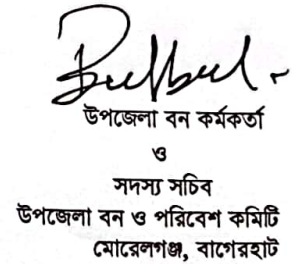 Bulbul
উপজেলা বন কর্মকর্তা
ও
সদস্য সচিব
উপজেলা বন ও পরিবেশ কমিটি
মোরেলগঞ্জ, বাগেরহাট